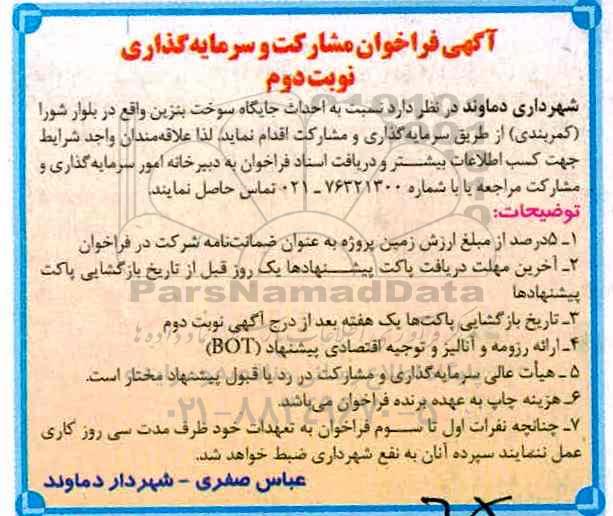 آگهی فراخوان مشارکت و سرمایه‌گذاری
نوبت دوم
شهرداری دماوند در نظر دارد نسبت به احداث جایگاه سوخت بنزین واقع در بلوار شورا
(کمربندی) از طریق سرمایه‌گذاری و مشارکت اقدام نماید، لذا علاقه‌مندان واجد شرایط
جهت کسب اطلاعات بیشتر و دریافت اسناد فراخوان به دبیرخانه امور سرمایه‌گذاری و
مشارکت مراجعه یا با شماره ۷۶۳۲۱۳۰۰ ـ ۰۲۱ تماس حاصل نمایند.
توضیحات:
۱ـ ۵درصد از مبلغ ارزش زمین پروژه به عنوان ضمانت‌نامه شرکت در فراخوان
۲ـ آخرین مهلت دریافت پاکت پیشنهادها یک روز قبل از تاریخ بازگشایی پاکت
پیشنهادها
ParsNamadData
۳ـ تاریخ بازگشایی پاکت‌ها یک هفته بعد از درج آگهی نوبت دوم
۴ـ ارائه رزومه و آنالیز و توجیه اقتصادی پیشنهاد (BOT)
۵ ـ هیأت عالی سرمایه‌گذاری و مشارکت در رد یا قبول پیشنهاد مختار است.
۶ـ هزینه چاپ به عهده برنده فراخوان می‌باشد.
۷ـ چنانچه نفرات اول تا سوم فراخوان به تعهدات خود ظرف مدت سی روز کاری
عمل ننمایند سپرده آنان به نفع شهرداری ضبط خواهد شد.
عباس صفری - شهردار دماوند